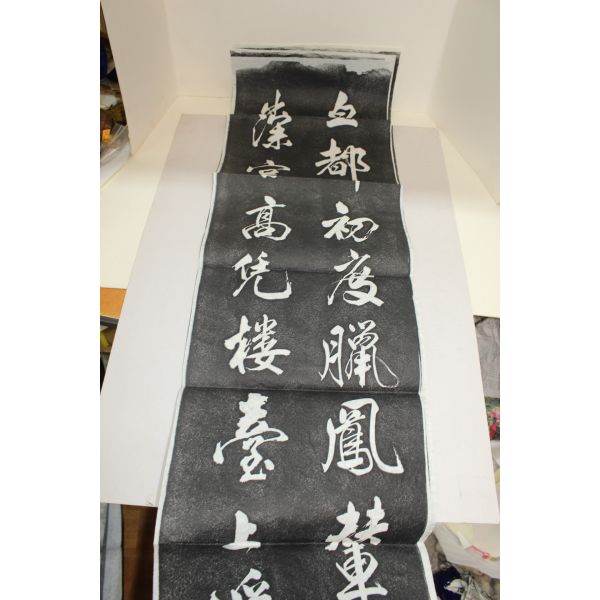 都初度臘鳳輦
高凭樓臺上